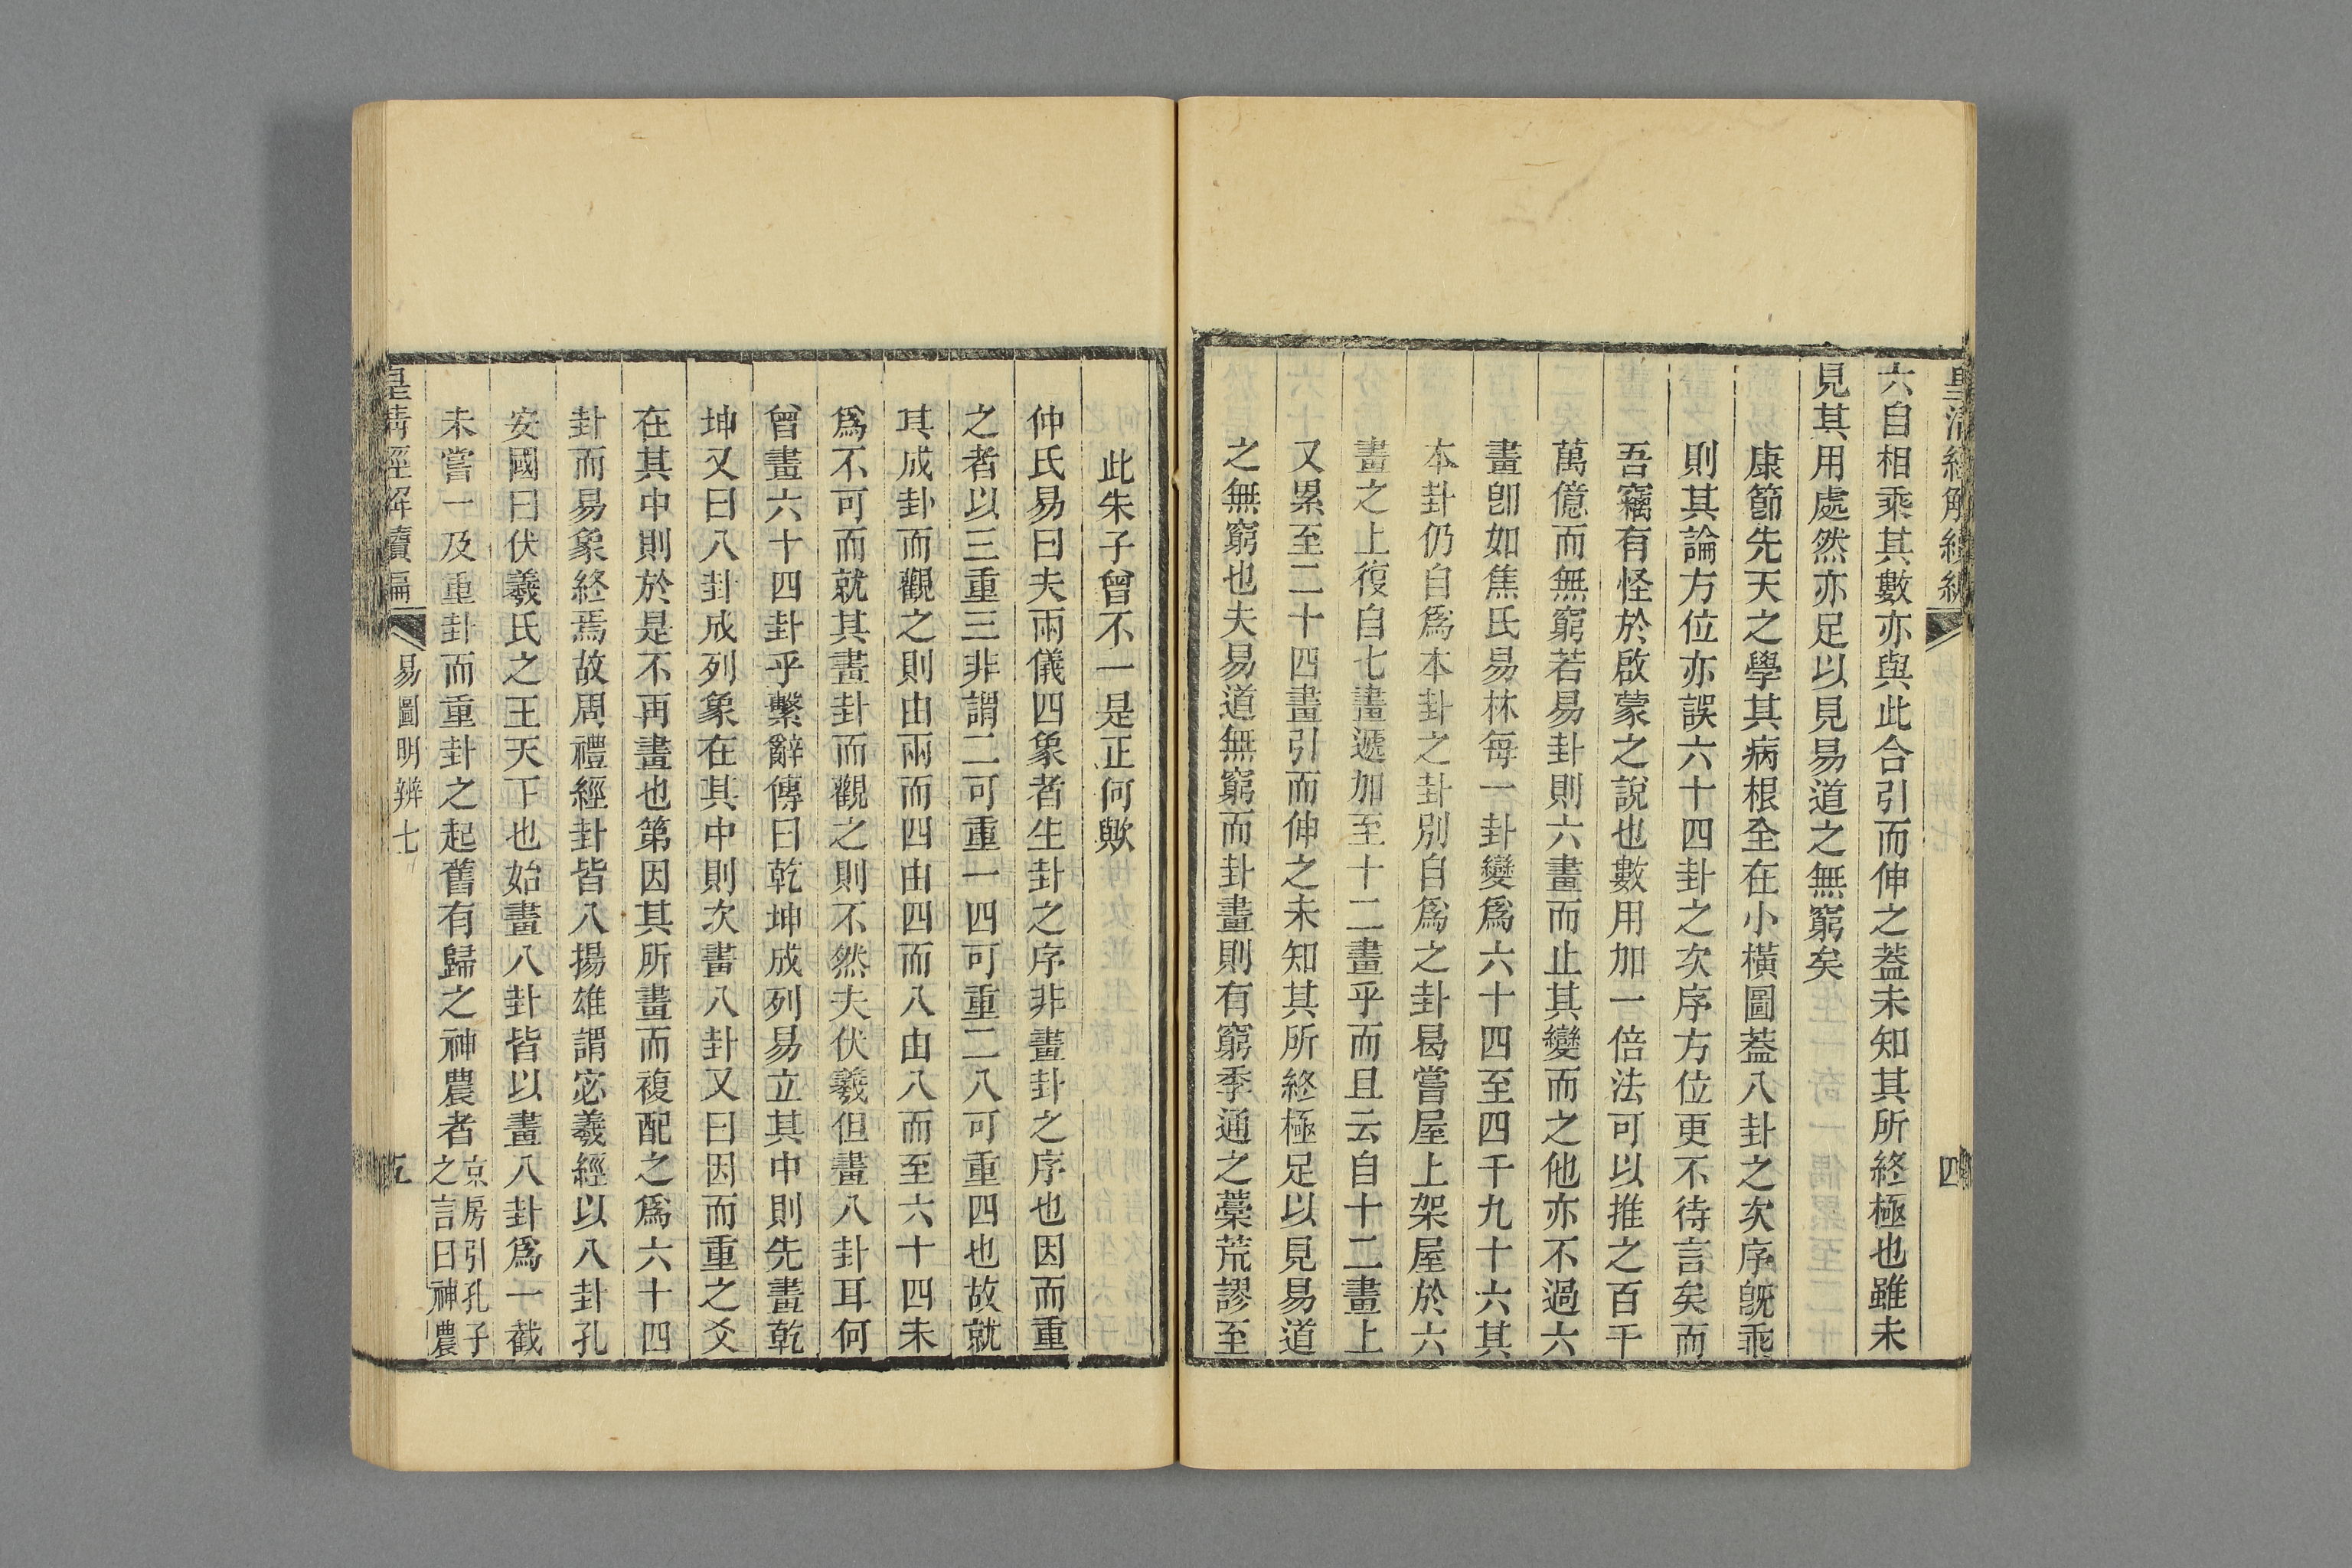 皇清經解續編
四
六自相乘其數亦與此合引而伸之葢未知其所終極也雖未
見其用處然亦足以見易道之無窮矣
康節先天之學其病根全在小橫圖葢八卦之次序旣乖
則其論方位亦誤六十四卦之次序方位更不待言矣而
吾竊有怪於啟蒙之說也數用加一倍法可以推之百千
萬億而無窮若易卦則六畫而止其變而之他亦不過六
畫卽如焦氏易林每一卦變爲六十四至四千九十六其
本卦仍自爲本卦之卦別自爲之卦曷嘗屋上架屋於六
畫之上復自七畫遞加至十二畫乎而且云自十二畫上
又累至二十四畫引而伸之未知其所終極足以見易道
之無窮也夫易道無窮而卦畫則有窮季通之藁荒謬至
此朱子曾不一是正何歟
仲氏易曰夫兩儀四象者生卦之序非畫卦之序也因而重
之者以三重三非謂二可重一四可重二八可重四也故就
其成卦而觀之則由兩而四由四而八由八而至六十四未
爲不可而就其畫卦而觀之則不然夫伏羲但畫八卦耳何
曾畫六十四卦乎繫辭傳曰乾坤成列易立其中則先畫乾
坤又曰八卦成列象在其中則次畫八卦又曰因而重之爻
在其中則於是不再畫也第因其所畫而複配之爲六十四
卦而易象終焉故周禮經卦皆八揚雄謂宓羲經以八卦孔
安國曰伏羲氏之王天下也始畫八卦皆以畫八卦爲一截
未嘗一及重卦而重卦之起舊有歸之神農者京房引孔子之言曰神農
皇清經解續編
易圖明辨七
五